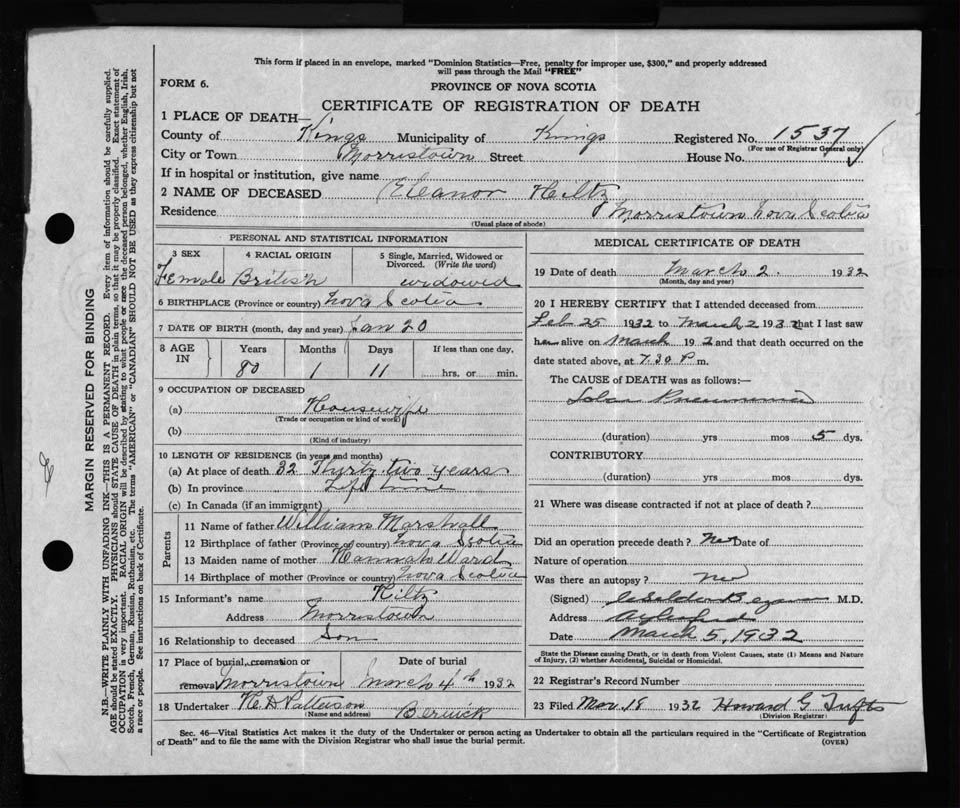 This form if placed in an envelope, marked "Dominion Statistics—Free, penalty for improper use, $300," and properly addressed
will pass through the Mail "FREE"
FORM 6.
PROVINCE OF NOVA SCOTIA
CERTIFICATE OF REGISTRATION OF DEATH
1 PLACE OF DEATH—
County of Kings Municipality of Kings Registered No. 1537
(For use of Registrar General only)
City or Town Morristown Street House No.
If in hospital or institution, give name
2 NAME OF DECEASED Eleanor Hiltz
Residence Morristown Nova Scotia
(Usual place of abode)
PERSONAL AND STATISTICAL INFORMATION
3 SEX 4 RACIAL ORIGIN 5 Single, Married, Widowed or
Divorced. (Write the word)
Female British widowed
6 BIRTHPLACE (Province or country) Nova Scotia
7 DATE OF BIRTH (month, day and year) Jan 20
8 AGE IN Years Months Days If less than one day.
80 1 11 hrs. or min.
9 OCCUPATION OF DECEASED
(a) Housewife
(Trade or occupation or kind of work)
(b)
(Kind of industry)
10 LENGTH OF RESIDENCE (in years and months)
(a) At place of death 32 Thirty two years
(b) In province Life time
(c) In Canada (if an immigrant)
Parents
11 Name of father William Marshall
12 Birthplace of father (Province or country) Nova Scotia
13 Maiden name of mother Hannah Ward
14 Birthplace of mother (Province or country) Nova Scotia
15 Informant's name Hiltz
Address Morristown
16 Relationship to deceased Son
17 Place of burial, cremation or Date of burial
removal Morristown March 4th 1932
18 Undertaker H D Patterson
(Name and address) Berwick
MEDICAL CERTIFICATE OF DEATH
19 Date of death March 2. 1932
(Month, day and year)
20 I HEREBY CERTIFY that I attended deceased from
Feb 25 1932 to March 2 1932 that I last saw
her alive on March 192 and that death occurred on the
date stated above, at 7.30 P m.
The CAUSE OF DEATH was as follows:—
Lobar Pneumonia
(duration) yrs mos 5 dys.
CONTRIBUTORY
(duration) yrs mos dys.
21 Where was disease contracted if not at place of death?
Did an operation precede death? No Date of
Nature of operation
Was there an autopsy? No
(Signed) M.D.
Address Aylesford
Date March 5, 1932
State the Disease causing Death, or in death from Violent Causes, state (1) Means and Nature
of Injury, (2) whether Accidental, Suicidal or Homicidal.
22 Registrar's Record Number
23 Filed Mar. 18 1932 Howard G Tufts
(Division Registrar)
Sec. 46—Vital Statistics Act makes it the duty of the Undertaker or person acting as Undertaker to obtain all the particulars required in the "Certificate of Registration
of Death" and to file the same with the Division Registrar who shall issue the burial permit.
(OVER)
MARGIN RESERVED FOR BINDING
N.B.—WRITE PLAINLY WITH UNFADING INK—THIS IS A PERMANENT RECORD. Every item of information should be carefully supplied.
AGE should be stated EXACTLY. PHYSICIANS should STATE CAUSE OF DEATH in plain terms, so that it may be properly classified. Exact statement of
OCCUPATION is very important. RACIAL ORIGIN will be described by stating to what people or race the deceased person belonged, whether English, Irish,
Scotch, French, German, Russian, Ruthenian, etc. The terms "AMERICAN" or "CANADIAN" SHOULD NOT BE USED as they express citizenship but not
a race or people. See instructions on back of Certificate.